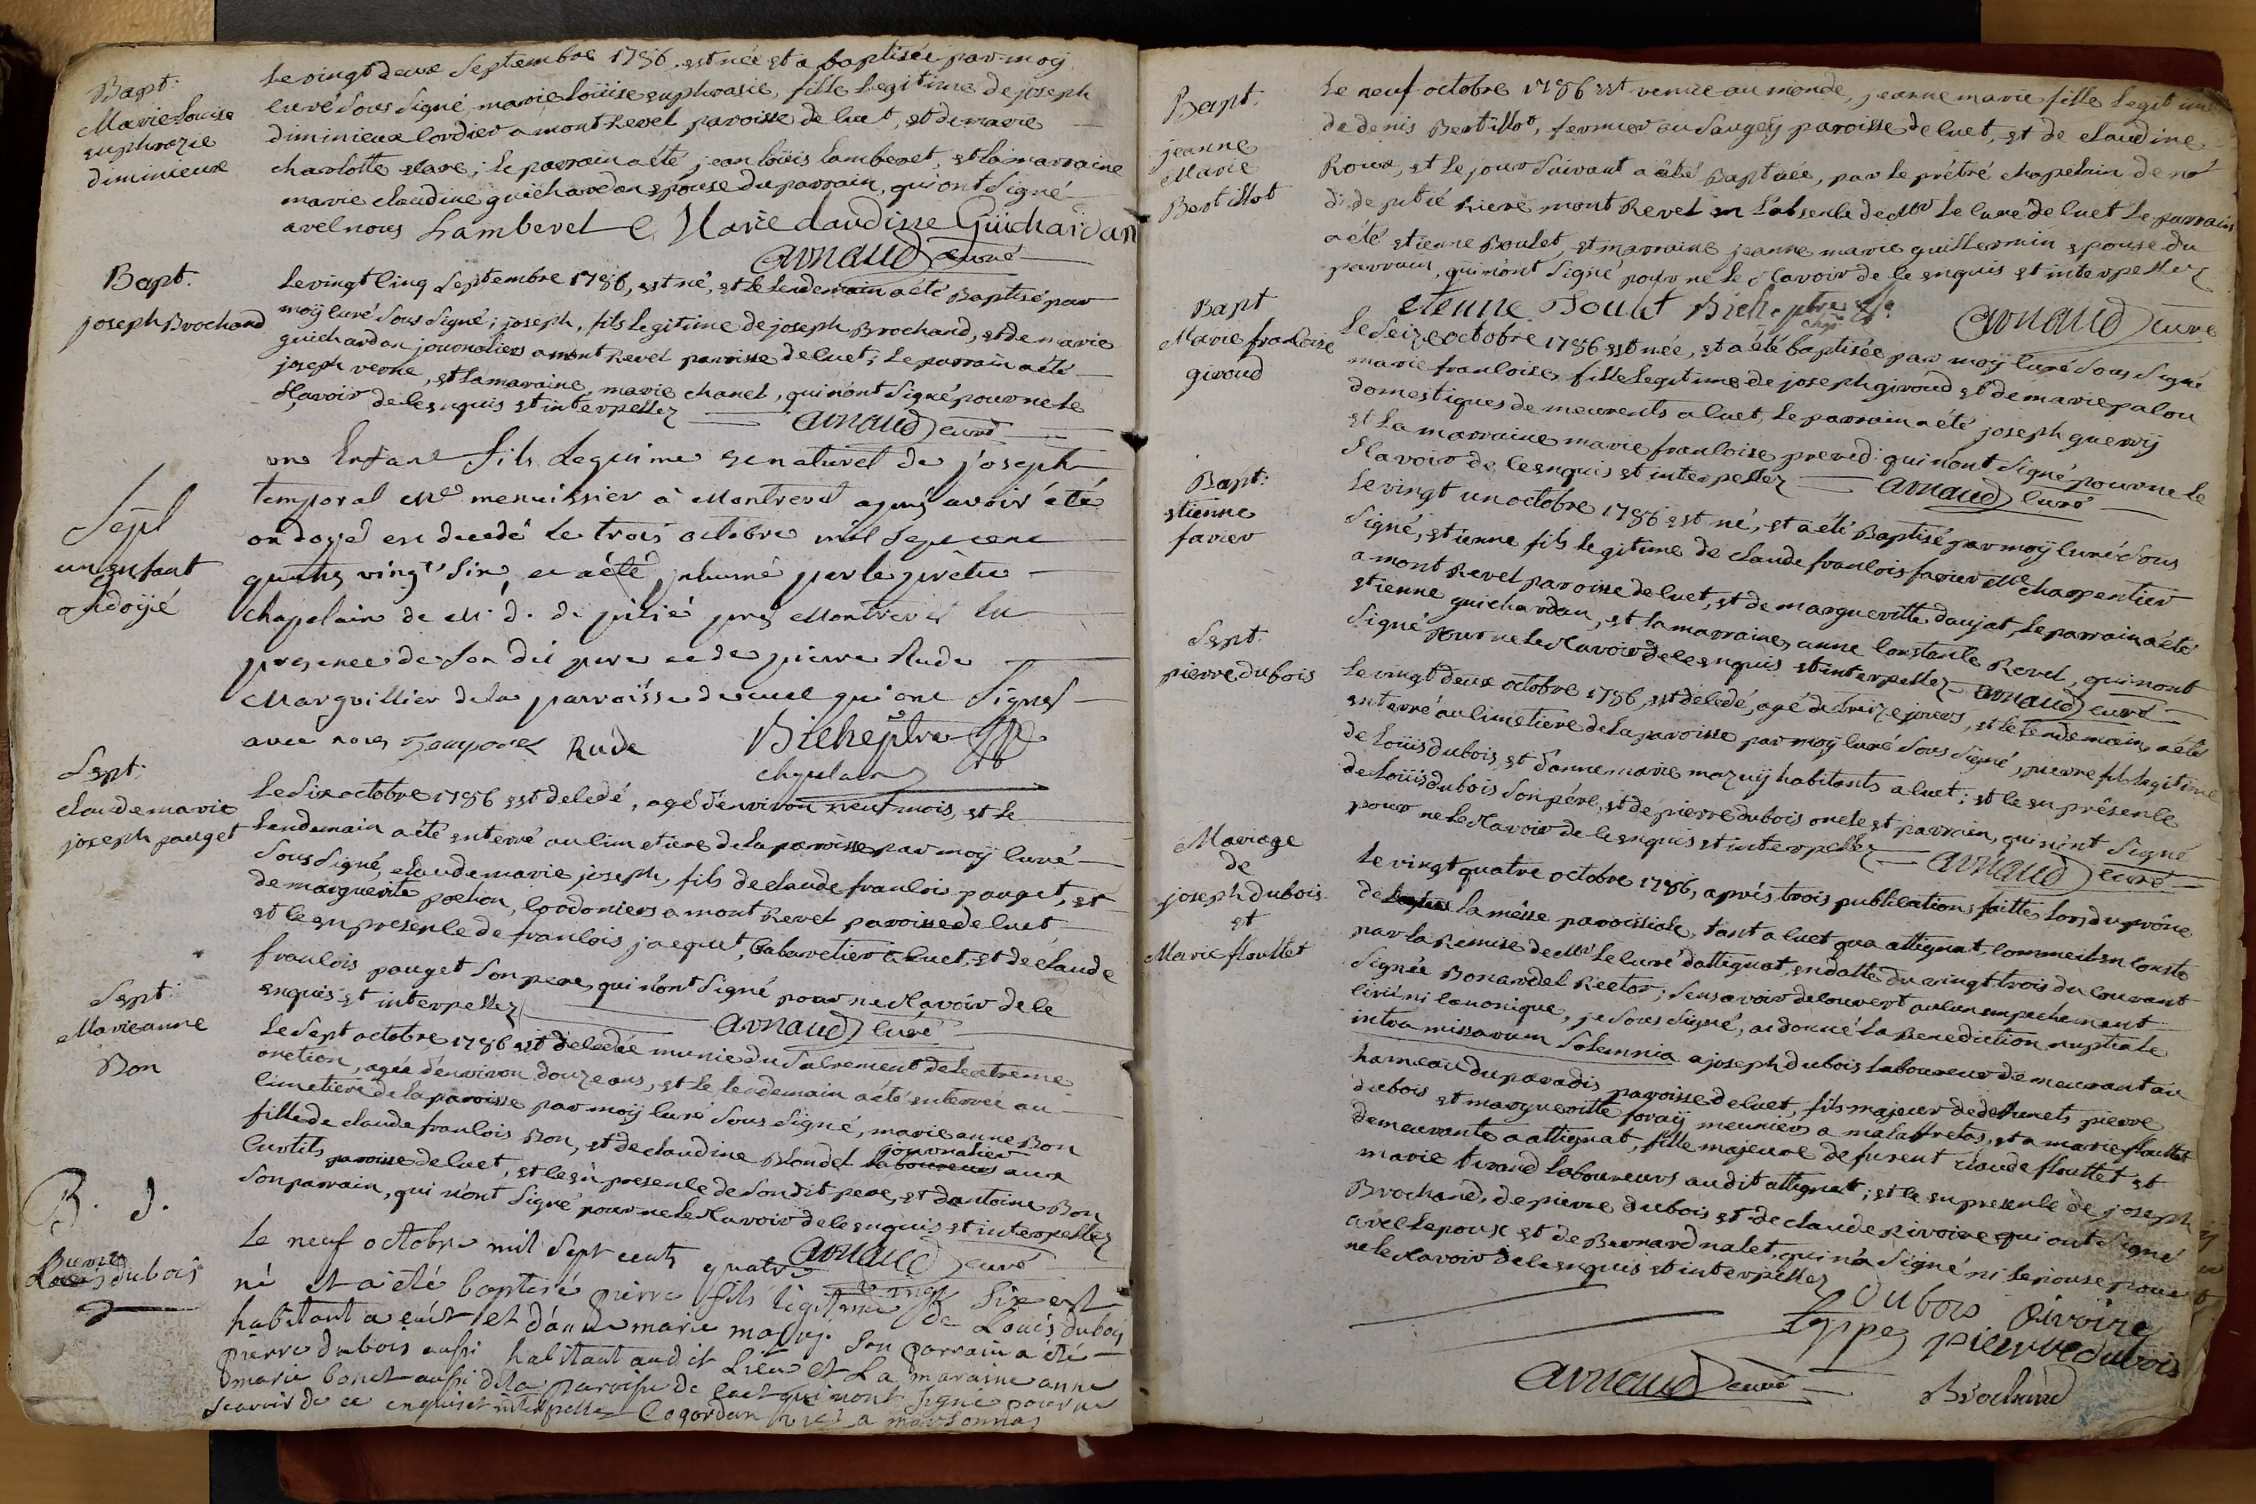 Bapt:
Marie Louise
euphrazie
diminieux
Le vingt deux Septembre 1786, est née et a baptisée par moÿ
curé sous signé marie loüise euphrasie, fille legitime de joseph
diminieux cordier a mont Revel paroisse de cuet, et de marie
charlotte clare; le parrain a été jean loüis lamberet, et la marraine
marie claudine guichardon epouse du parrain, qui ont signé
avec nous Lamberet Marie claudine Guichardan
arnaud curé
Bapt.
joseph Brochand
Le vingt cinq Septembre 1786, est né, et le lendemain a été Baptisé par
moÿ curé sous signé; joseph, fils legitime de joseph Brochand, et de marie
guichardon journaliers a mont Revel paroisse de cuet; le parrain a été
joseph verne, et la maraine, marie chanel, qui n'ont signé pour ne le
sçavoir de ce enquis et interpellez arnaud curé
Sepl
un enfant
ondoÿié
un Enfant fils legitime et naturel de joseph
temporal Me menuissier à Montrevel après avoir été
ondoyé est decedé le trois octobre mil sept cent
quatre vingt six, et a été inhumé par le prêtre
chapelain de N. d. de pitié près Montrevel en
presence de son dit pere et de pierre Rude
Marguillier de la parroisse de cuet qui ont signés
avec nous Temporal Rude Bichet ptre
chapelain
Sept:
claude marie
joseph pauget
Le Six octobre 1786 est decedé, agé d'environ neuf mois, et le
Lendemain a été enterré au cimetiere de la paroisse par moÿ curé
sous signé, claude marie joseph, fils de claude francois pauget, et
de marguerite pochon, cordoniers a mont Revel paroisse de cuet
et ce en presence de francois jacquet, Cabaretier a cuet, et de claude
francois pauget son pere, qui n'ont signé pour ne sçavoir de ce
enquis et interpellez arnaud curé
Sept:
Marie anne
Bon
Le Sept octobre 1786 est decedée munie du Sacrement de lextreme
onction, agée d'environ douze ans, et le lendemain a été enterrée au
cimetiere de la paroisse par moÿ curé sous signé, marie anne Bon
fille de claude francois Bon, et de claudine Blondel journalier aux
Curtils, paroisse de cuet, et ce en presence de son dit pere, et d'antoine Bon
son parrain, qui n'ont signé pour ne le sçavoir de ce enquis et interpellez
arnaud curé
B. d.
pierre dubois
Le neuf octobre mil Sept cents quatre vingt Six est
né et a été baptisé pierre fils légitime de Louis dubois
habitant a cuët et d'anne marie mazuÿ. Son parrain a été
pierre dubois aussi habitant audit Lieu et La maraine anne
marie bonet aussi de la paroisse de cuet qui n'ont signé pour ne
scavoir de ce enquis et interpelle Cogordan vic. a marsonnas
Bapt.
jeanne
Marie
Bertillot
Le neuf octobre 1786 est venue au monde, jeanne marie fille legitime
de denis Bertillot, fermier au Saugeÿ paroisse de cuet, et de claudine
Roux, et le jour suivant a été Baptisée, par le prêtre chapelain de no
d. de pitié Riere mont Revel en l'absence de Mr le curé de cuet le parrain
a été etienne Boulet, et marraine, jeanne marie guillermin epouse du
parrain, qui n'ont signé pour ne le sçavoir de ce enquis et interpellez
etienne Boulet Bichet ptre arnaud curé
Bapt
Marie francoise
giroud
Le Seize octobre 1786 est née, et a été baptisée par moÿ curé sous signé
marie francoise, fille legitime de joseph giroud et de marie palou
domestiques demeurents a cuet, le parrain a été joseph guerrÿ
et la marraine marie francoise preved: qui n'ont signé pour ne le
sçavoir de ce enquis et interpellez arnaud curé
Bapt:
etienne
favier
Le vingt un octobre 1786 est né, et a été Baptisé par moÿ curé sous
signé, etienne fils legitime de claude francois favier Me charpentier
a mont Revel paroisse de cuet, et de margueritte daujat, le parrain a été
etienne guichardan, et la marraine anne constance Revel, qui n'ont
signé pour ne le sçavoir de ce enquis et interpellez arnaud curé
Sept:
pierre dubois
Le vingt deux octobre 1786, est decedé, agé de treize jours, et le lendemain, a été
enterré au cimetiere de la paroisse par moÿ curé sous signé, pierre fils legitime
de Loüis dubois, et d'anne marie mazuÿ habitants a cuet; et ce en présence
de Loüis dubois son pére, et de pierre dubois oncle et parrain, qui n'ont signé
pour ne le sçavoir de ce enquis et interpellez arnaud curé
Mariage
de
joseph dubois
et
Marie flouttet
Le vingt quatre octobre 1786, aprés trois publications faittes lors du prône
de la mésse paroissiale, tant a cuet qua attignat, comme il en conste
par la Remise de Mr le curé d'attignat, en datte du vingt trois du courant
signée Bonardel Rector; sans avoir decouvert aucun empechement
civil ni canonique, je sous signé, ai donné la Benediction nuptiale
intra missarum solemnia a joseph dubois laboureur demeurant au
hameau du paradis paroisse de cuet, fils majeur de defunets pierre
dubois et margueritte foraÿ meuniers a malaffretas, et a marie flouttet
demeurante a attignat, fille majeure de furent claude flouttet et
marie tirand laboureurs audit attignat; et ce en presence de joseph
Brochand, de pierre dubois et de claude Rivoire qui ont signé
avec lepoux et de Bernard nalet, qui n'a signé ni lepouse pour
ne le sçavoir de ce enquis et interpellez
dubois Rivoire
pierre dubois
arnaud curé Brochand